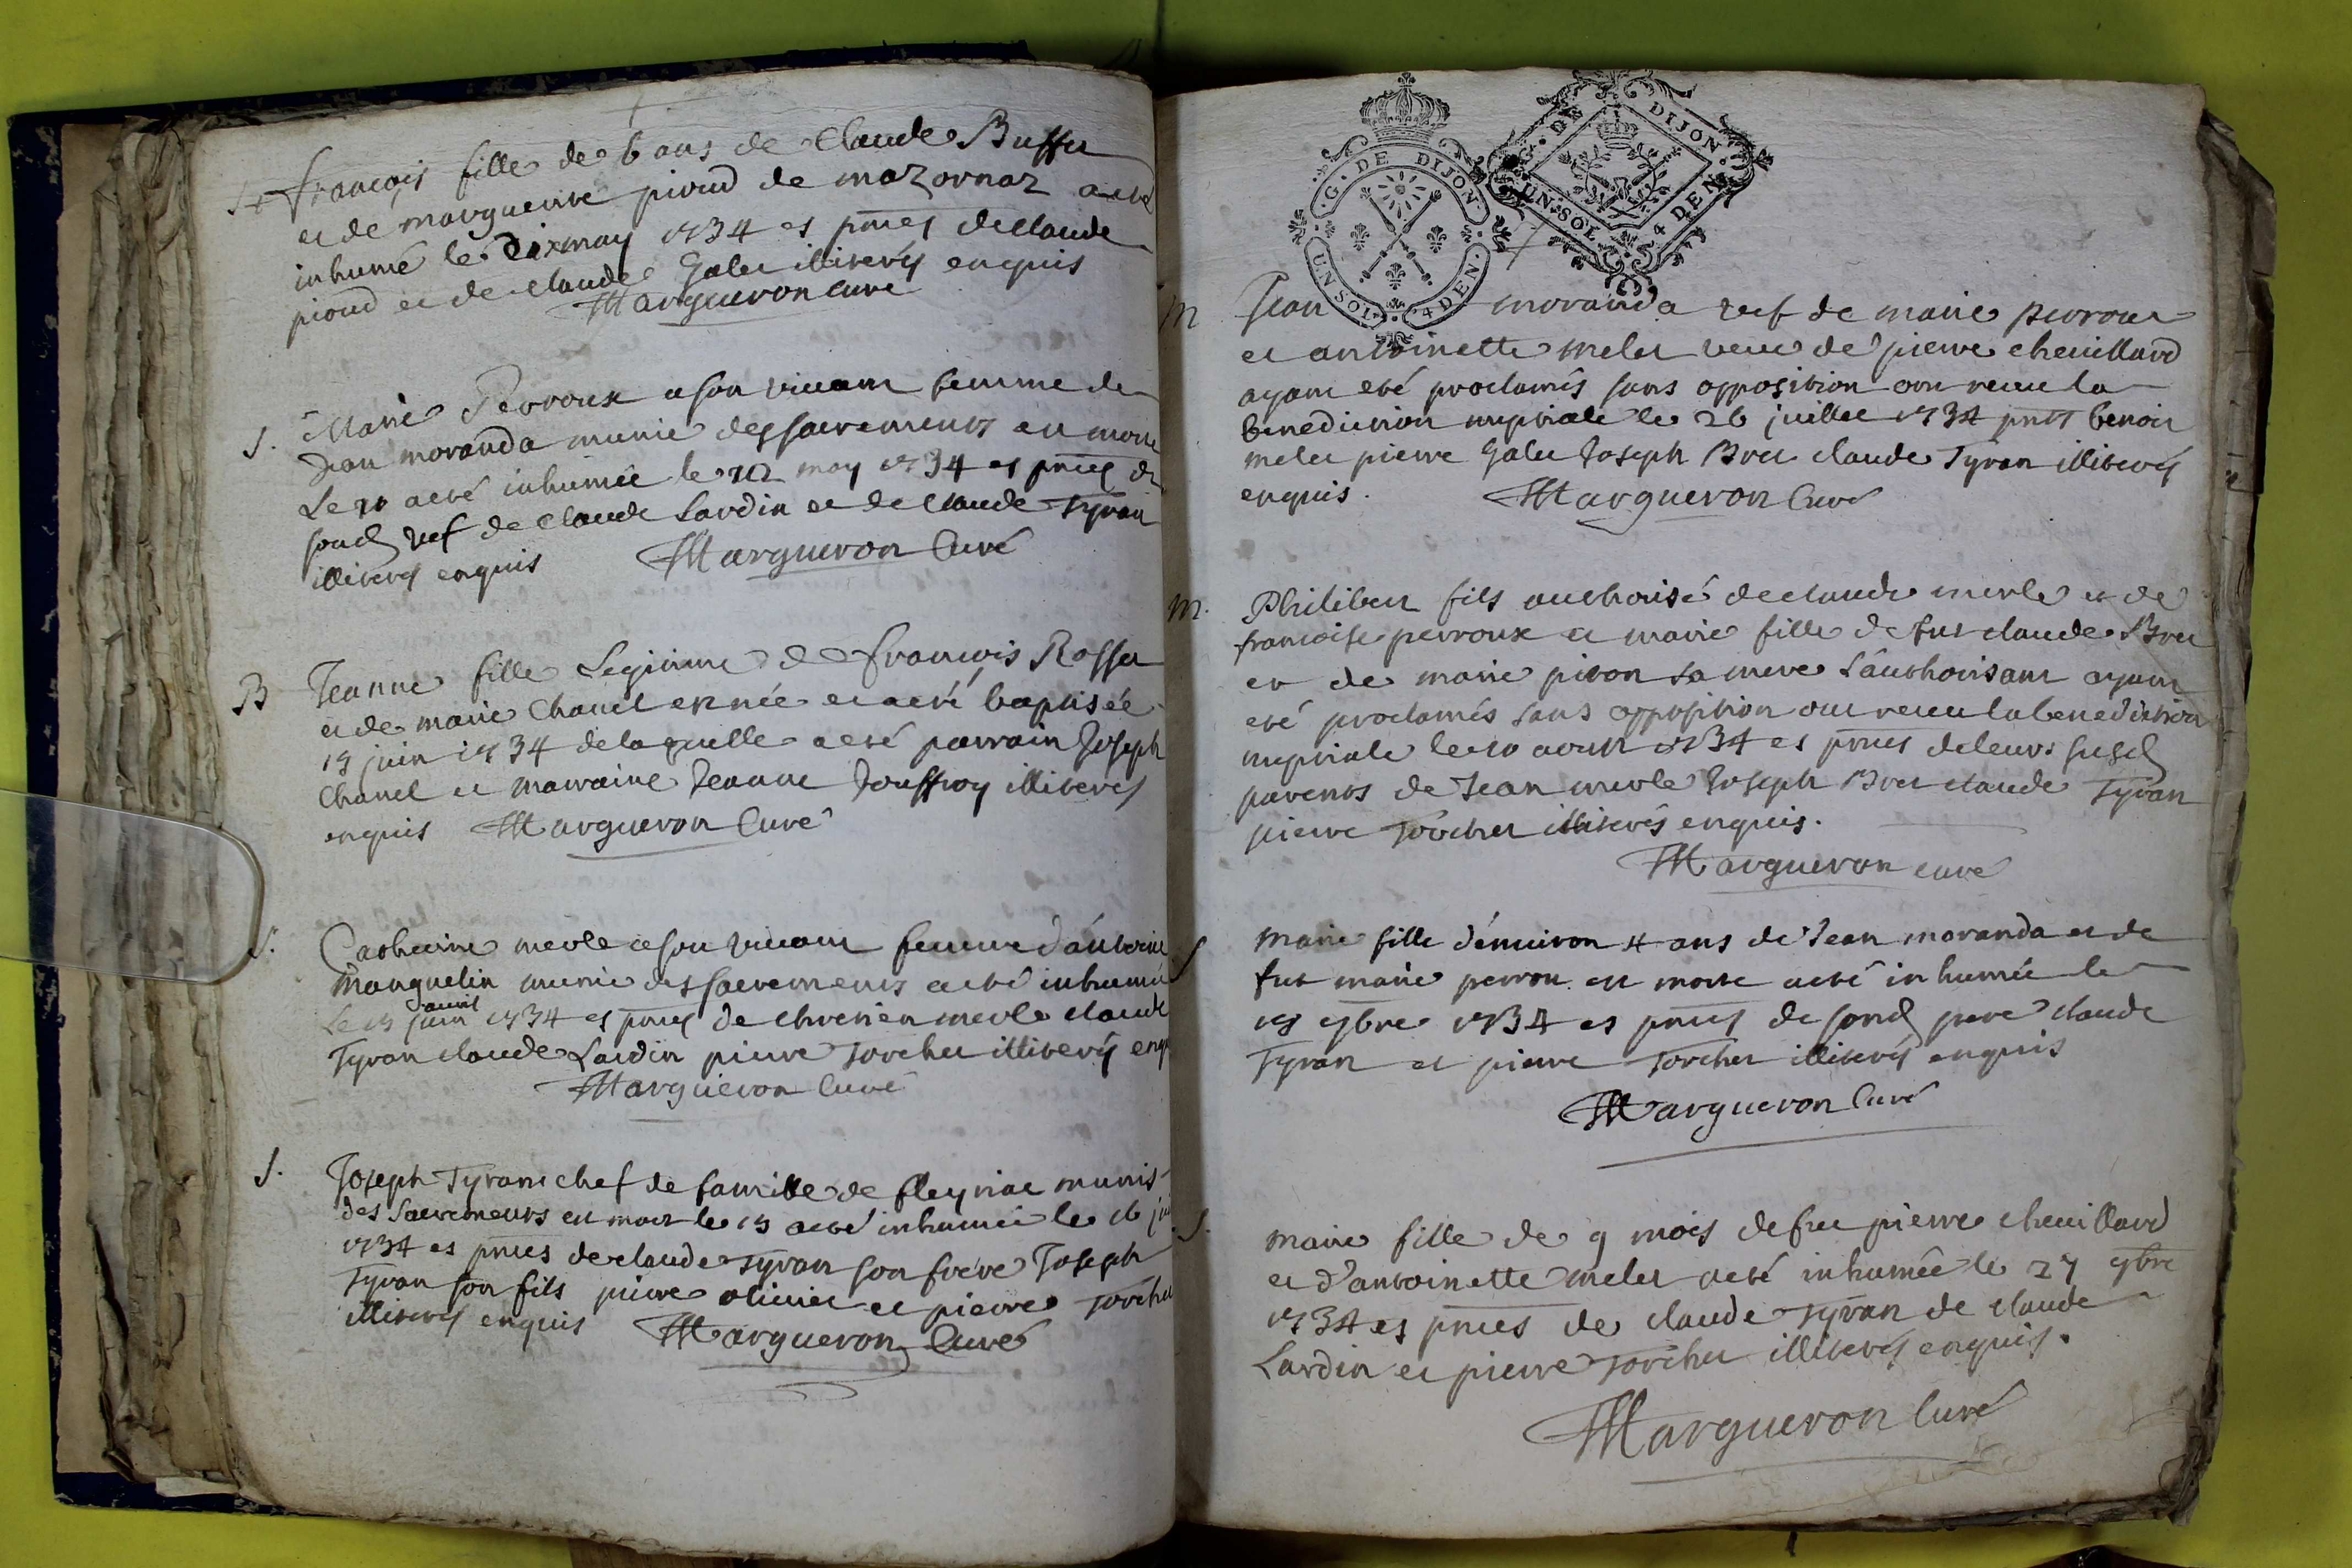 S. françois fille de 6 ans de Claude Buffet
et de marguerite pioud de mazornaz a eté
inhumé le dix may 1734 es pnces de claude
pioud et de claude Galet illiterés enquis
Margueron Curé
S. Marie Perroux a son vivant femme de
Jean moranda munie des sacrements est morte
Le 10 a eté inhumée le 12 may 1734 es pnces du
sond vef de Claude Lardin et de Claude Tyran
illiterés enquis Margueron Curé
B Jeanne fille Legitime de françois Rosset
et de marie Chanel est née et a eté baptisée
13 juin 1734 de laquelle a eté parrain Joseph
Chanel et marraine Jeanne Jouffroy illiterés
enquis Margueron Curé
S. Catherine merle a son vivant femme d'antoine
manguelin munie des sacrements a eté inhumée
avril
Le 13 juin 1734 es pnces de chretien merle claude
Tyran claude Lardin pierre Torchet illiterés enq
Margueron Curé
S. Joseph Tyran chef de famille de fleyriat munis
des Sacrements est mort le 15 a eté inhumé le 16 jui
1734 es pnces de claude Tyran son frere Joseph
Tyran son fils pierre olivier et pierre Torchet
illiterés enquis Margueron Curé
G. DE DIJON
UN SOL 4 DEN.
G. DE DIJON
UN SOL 4 DEN.
M Jean moranda vef de marie perroux
et antoinette melet veve de pierre chevillard
ayant eté proclamés sans opposition ont receu la
benediction nuptiale le 26 juillet 1734 pnts benoit
melet pierre Galet Joseph Bret claude Tyran illiterés
enquis. Margueron Curé
M. Philibert fils authorisé de claude merle et de
francoise perroux et marie fille de fut claude Bret
et de marie piton sa mere L'authorisant ayant
eté proclamés sans opposition ont receu la benediction
nuptiale le 10 aoust 1734 es pnces de leurs susd
parents de Jean merle Joseph Bret claude Tyran
pierre Torchet illiterés enquis.
Margueron curé
S marie fille d'environ 4 ans de Jean moranda et de
fut marie perrou est morte a eté inhumée le
18 9bre 1734 es pnces de sond pere claude
Tyran et pierre Torchet illiterés enquis
Margueron Curé
S. marie fille de 9 mois de feu pierre chevillard
et d'antoinette melet a eté inhumée le 27 9bre
1734 es pnces de claude Tyran de claude
Lardin et pierre Torchet illiterés enquis.
Margueron Curé